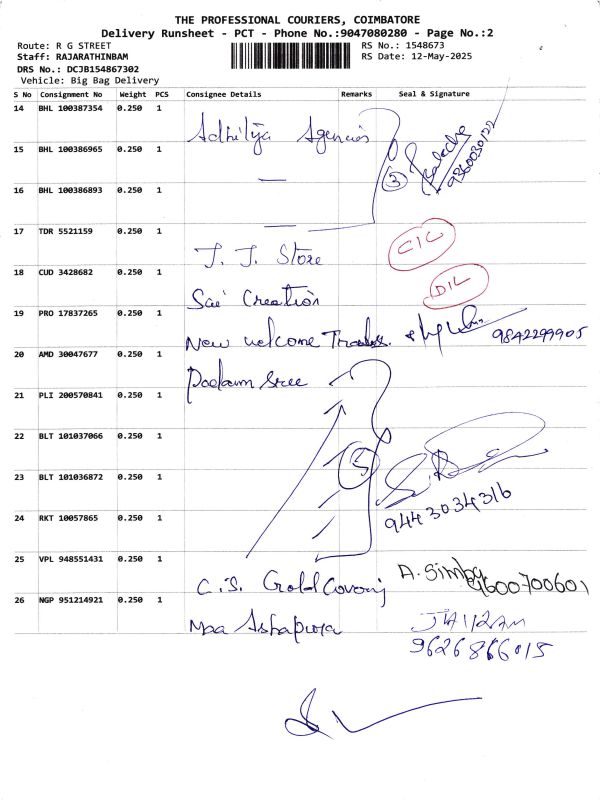 THE PROFESSIONAL COURIERS, COIMBATORE
Delivery Runsheet - PCT - Phone No.:9047080280 - Page No.:2
Route: R G STREET
Staff: RAJARATHINBAM
DRS No.: DCJB154867302
Vehicle: Big Bag Delivery
RS No.: 1548673
RS Date: 12-May-2025
S No Consignment No Weight PCS Consignee Details Remarks Seal & Signature
14 BHL 100387354 0.250 1 Adhilya Agencies
15 BHL 100386965 0.250 1 3
16 BHL 100386893 0.250 1
17 TDR 5521159 0.250 1 J. J. Store
18 CUD 3428682 0.250 1 Sai Creation D/L
19 PRO 17837265 0.250 1 New welcome Trades. 9842299905
20 AMD 30047677 0.250 1 sree
21 PLI 200570841 0.250 1
22 BLT 101037066 0.250 1 5
23 BLT 101036872 0.250 1
24 RKT 10057865 0.250 1 9443034316
25 VPL 948551431 0.250 1 C.S. Gold Covering A. Simby 9600700601
26 NGP 951214921 0.250 1 Maa Ashapura
9626866015